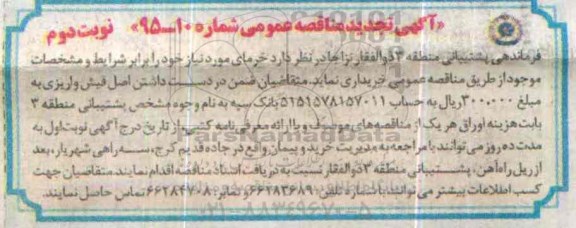 «آگهی تجدید مناقصه عمومی شماره ۱۰-۹۵» نوبت دوم
فرماندهی پشتیبانی منطقه ۳ ذوالفقار نزاجا در نظر دارد خرمای مورد نیاز خود را برابر شرایط و مشخصات
موجود از طریق مناقصه عمومی خریداری نماید. متقاضیان ضمن در دست داشتن اصل فیش واریزی به
مبلغ ۳۰۰،۰۰۰ ریال به حساب ۵۱۵۱۵۷۸۱۵۷۰۱۱ بانک سپه به نام وجوه مشخص پشتیبانی منطقه ۳
بابت هزینه اوراق هر یک از مناقصه‌های موصوف و با ارائه معرفی‌نامه کتبی، از تاریخ درج آگهی نوبت اول به
مدت ده روز می‌توانند با مراجعه به مدیریت خرید و پیمان واقع در جاده قدیم کرج، سه راهی شهریار، بعد
از ریل راه‌آهن، پشتیبانی منطقه ۳ ذوالفقار نسبت به دریافت اسناد مناقصه اقدام نمایند متقاضیان جهت
کسب اطلاعات بیشتر می‌توانند با شماره تلفن ۶۶۲۸۳۶۸۹ و نمابر: ۶۶۲۸۴۷۰۸ تماس حاصل نمایند.
۰۲۱-۸۸۳۴۹۶۷۰-۵